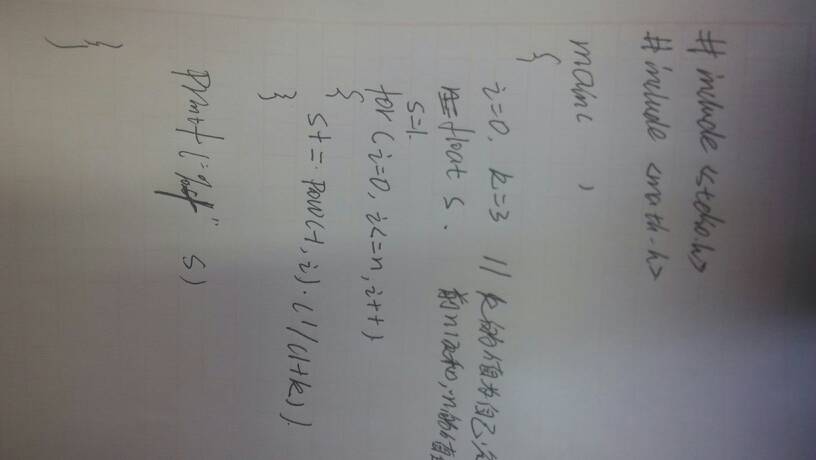 # include <stdio.h>
# include <math.h>
main( )
{
i=0, k=3 // k的值为自己
float s. 前n项和,n的值
s=1.
for (i=0, i<=n, i++)
{
s+= pow(-1, i)·(1/(1+k)).
}
printf(" " s)
}